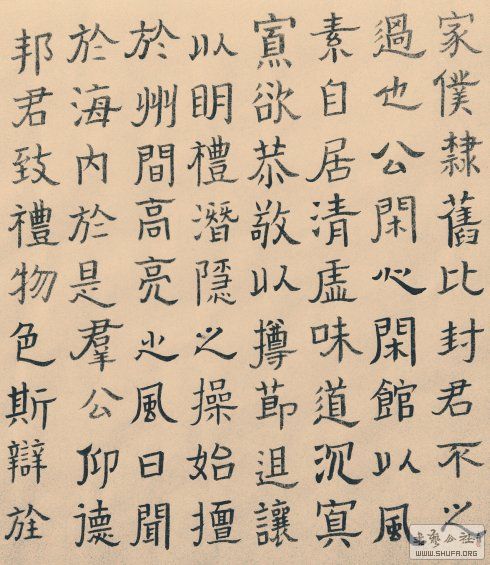 家僕隸舊比封君不之
過也公閑心閑館以風
素自居清虛味道沉冥
寡欲恭敬以撙莭退讓
以明禮潛隱之操始擅
於州間高亮之風日聞
於海内於是羣公仰德
邦君致禮物色斯辯旌
书艺公社
WWW.SHUFA.ORG